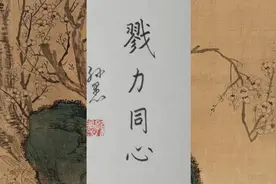 戮力同心
孙墨